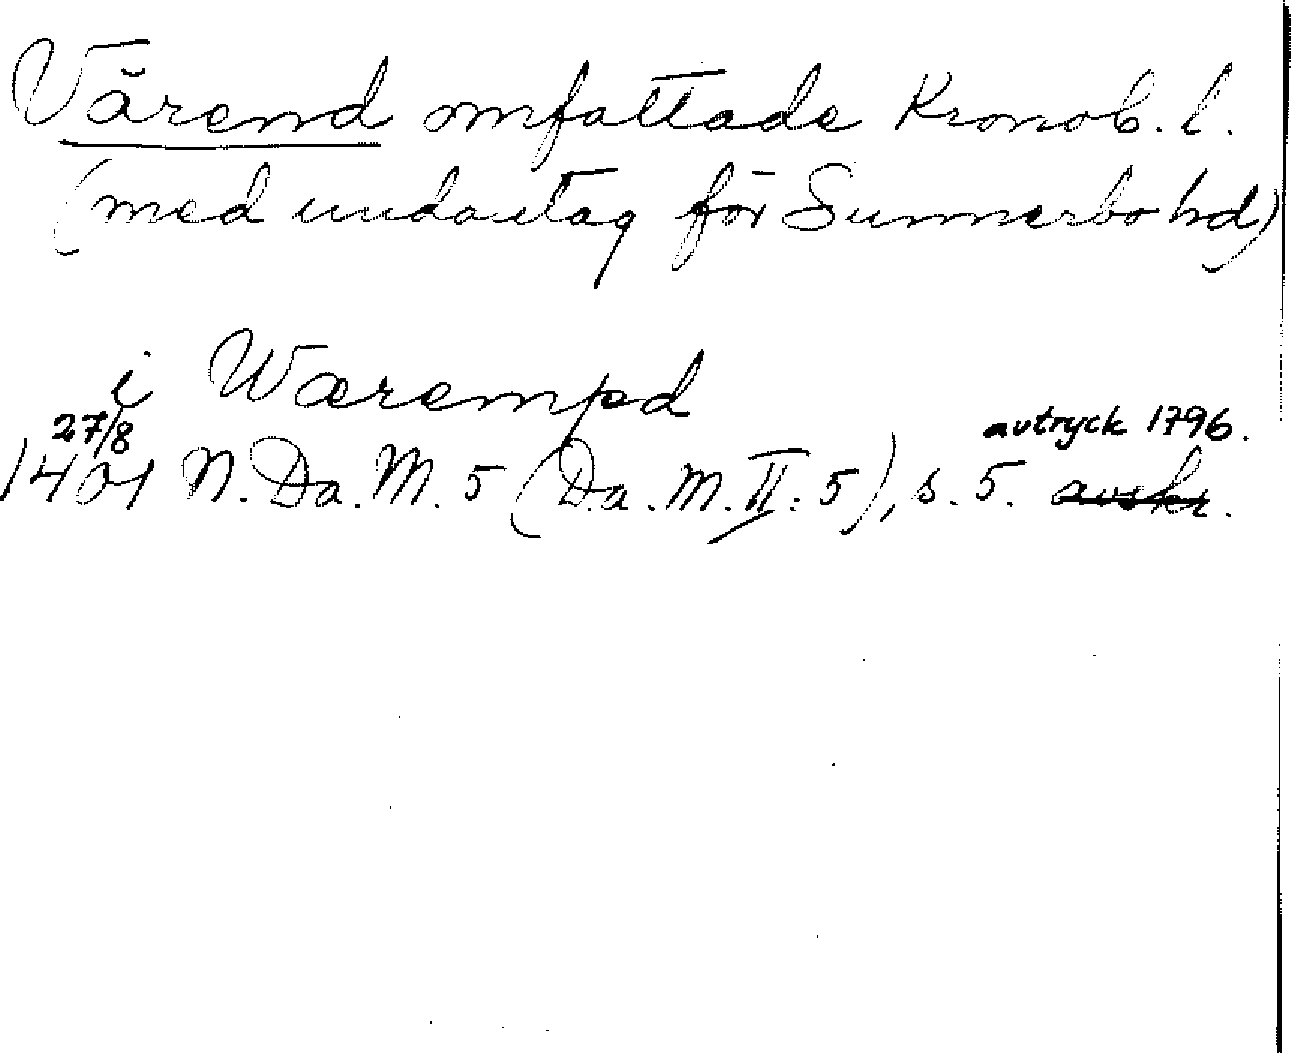 Värend omfattade Kronob. l.
(med undantag för Sunnerbo hd)
i Wærempd
27/8
avtryck 1796.
1401 N. Da. M. 5 (Da. M. II: 5), s. 5. avskr.